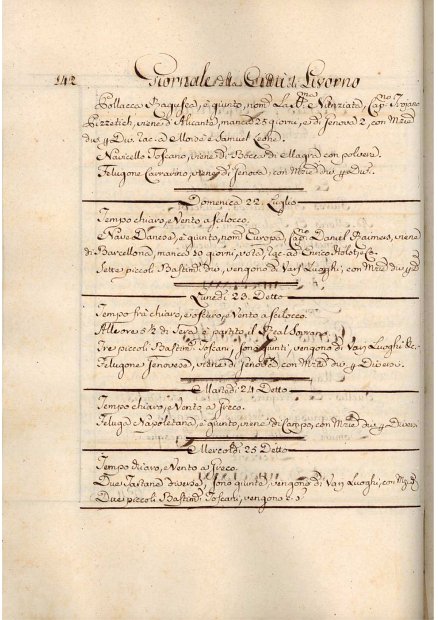 142 Giornale della Città di Livorno
Pollacca Ragusea, è giunto, nom. La SS.ma Nunziata, Cap.no Trojano
viene d'Alicante, manca 25 giorni, e di Genova 2, con M.rie
div. p. Div. rac. a Samuel Leone.
Navicello Toscano, viene di Bocca di Magra con polvere.
Felugone Carrarino, viene di Genova, con M.rie div. p. Div.
Domenica 22 Luglio
Tempo chiaro, e Vento a scilocco.
Nave Danese, è giunto, nom. Europa, Cap.no Daniel viene
di Barcellona, manca giorni, vota, rac. ad Enrico
Sette piccoli Bastim.ti div. vengono di Varj Luoghi, con M.rie div. p. D.
Lunedì 23 Detto
Tempo frà chiaro, e oscuro, e Vento a scilocco.
Alle ore 5 ½ di Sera è partito il Real Soprano.
Tre piccoli Bastim.ti Toscani, sono giunti, vengono di Varj Luoghi &c.
Felugone Genovese, viene di Genova, con M.rie div. p. Diversi.
Martedì 24 Detto
Tempo chiaro, e Vento a Greco.
Feluga Napoletana, è giunto, viene di Campo, con M.rie div. p. Diversi
Mercoldì 25 Detto
Tempo chiaro, e Vento a Greco.
Due Tartane diverse, sono giunte, vengono di Varj Luoghi, con M. d.
Due piccoli Bastim.ti Toscani, vengono